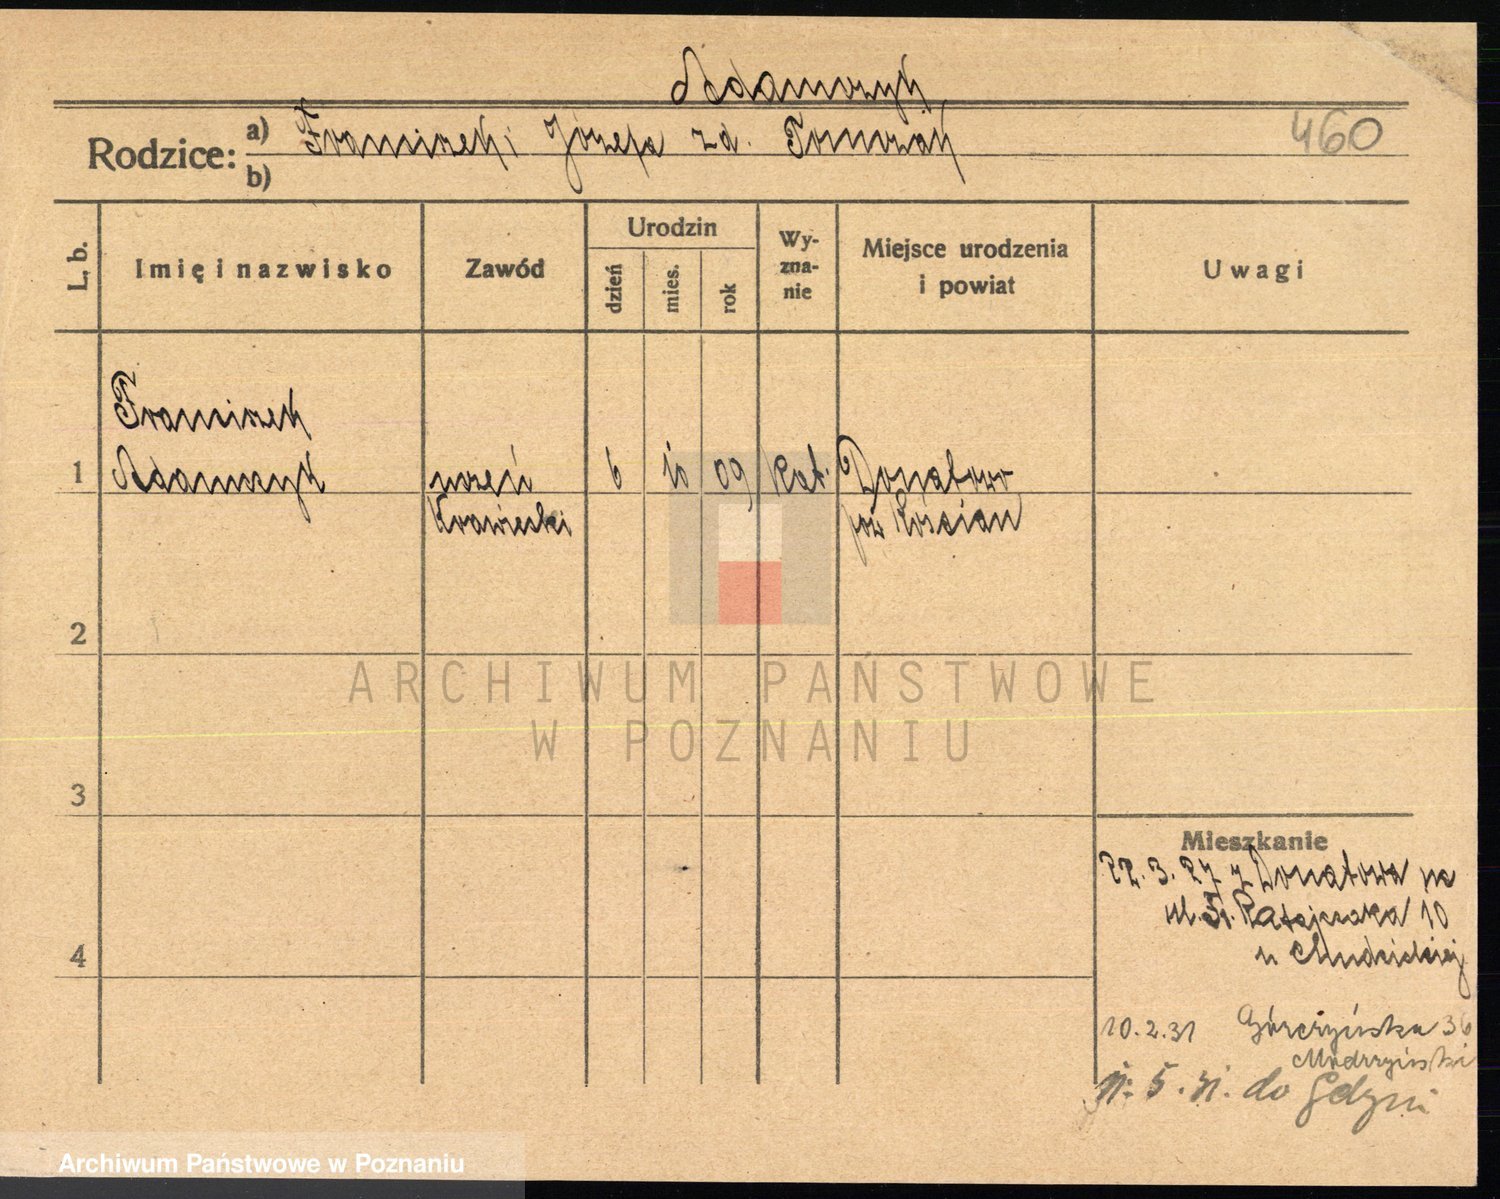 Adamczyk
Rodzice: a) Franciszek i Józefa zd. Tomczak
b)
460
L. b.
Imię i nazwisko
Zawód
Urodzin
dzień
mies.
rok
Wy-
zna-
nie
Miejsce urodzenia
i powiat
Uwagi
Franciszek
1 Adamczyk uczeń 6 10 09 kat. Donatowo
krawiecki pow Kościan
2
ARCHIWUM PAŃSTWOWE
W POZNANIU
3
Mieszkanie
22. 3. 27 z Donatowa na
ul. Fr. Ratajczaka 10
u
4
10.2.31 Górczyńska 36
Mądrzyński
5. 31. do Gdyni
Archiwum Państwowe w Poznaniu